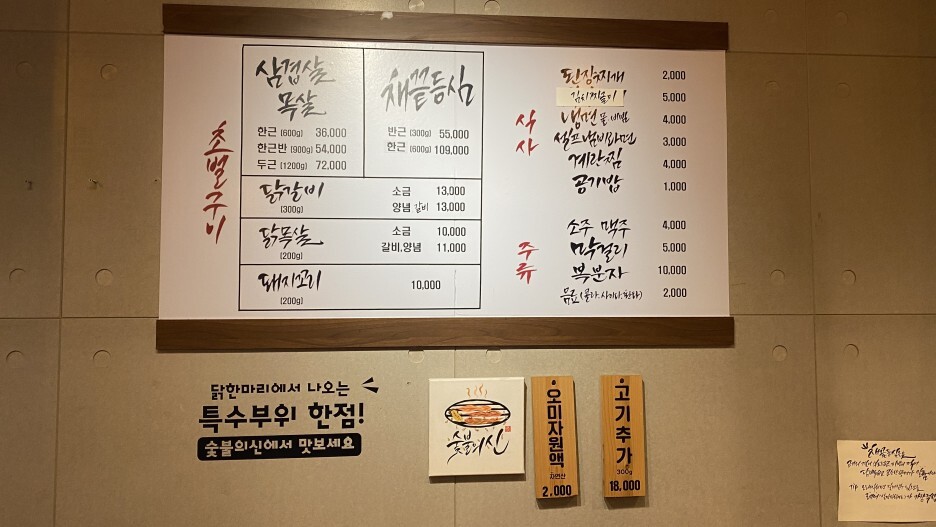 초벌구이
삼겹살
목살
한근 (600g) 36,000
한근반 (900g) 54,000
두근 (1200g) 72,000
채끝등심
반근 (300g) 55,000
한근 (600g) 109,000
닭갈비
(300g)
소금 13,000
양념 갈비 13,000
닭목살
(200g)
소금 10,000
갈비,양념 11,000
돼지꼬리
(200g)
10,000
식사
된장찌개 2,000
김치찌돌이 5,000
냉면 물, 비빔 4,000
셀프냄비라면 3,000
계란찜 4,000
공기밥 1,000
주류
소주 맥주 4,000
막걸리 5,000
복분자 10,000
음료 (콜라, 사이다, 환타) 2,000
닭한마리에서 나오는
특수부위 한점!
숯불의신에서 맛보세요
숯불의신
오미자원액
자연산
2,000
고기추가
300g
18,000